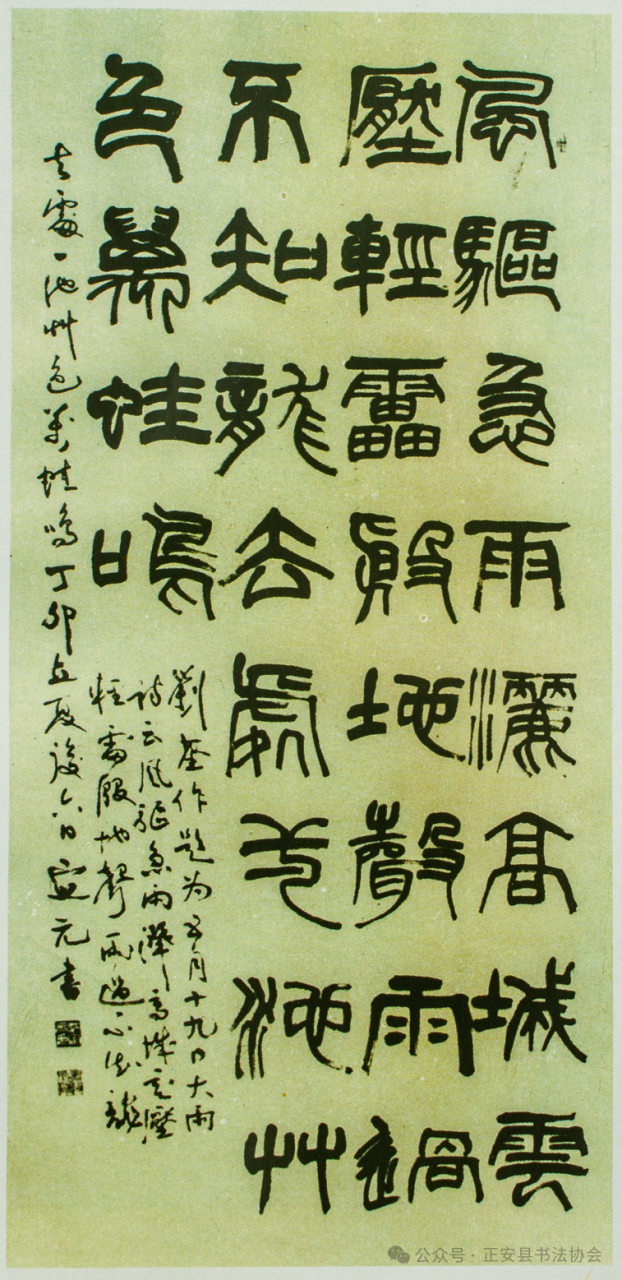 風驅急雨灑高城雲
壓輕雷殷地聲雨過
不知龍去處一池艸
色萬蛙鳴
劉基作題为五月十九日大雨
詩云風驅急雨灑高城云壓
輕雷殷地聲雨過不知龍
去處一池艸色萬蛙鳴丁卯立夏後六日元書
公众号·正安县书法协会